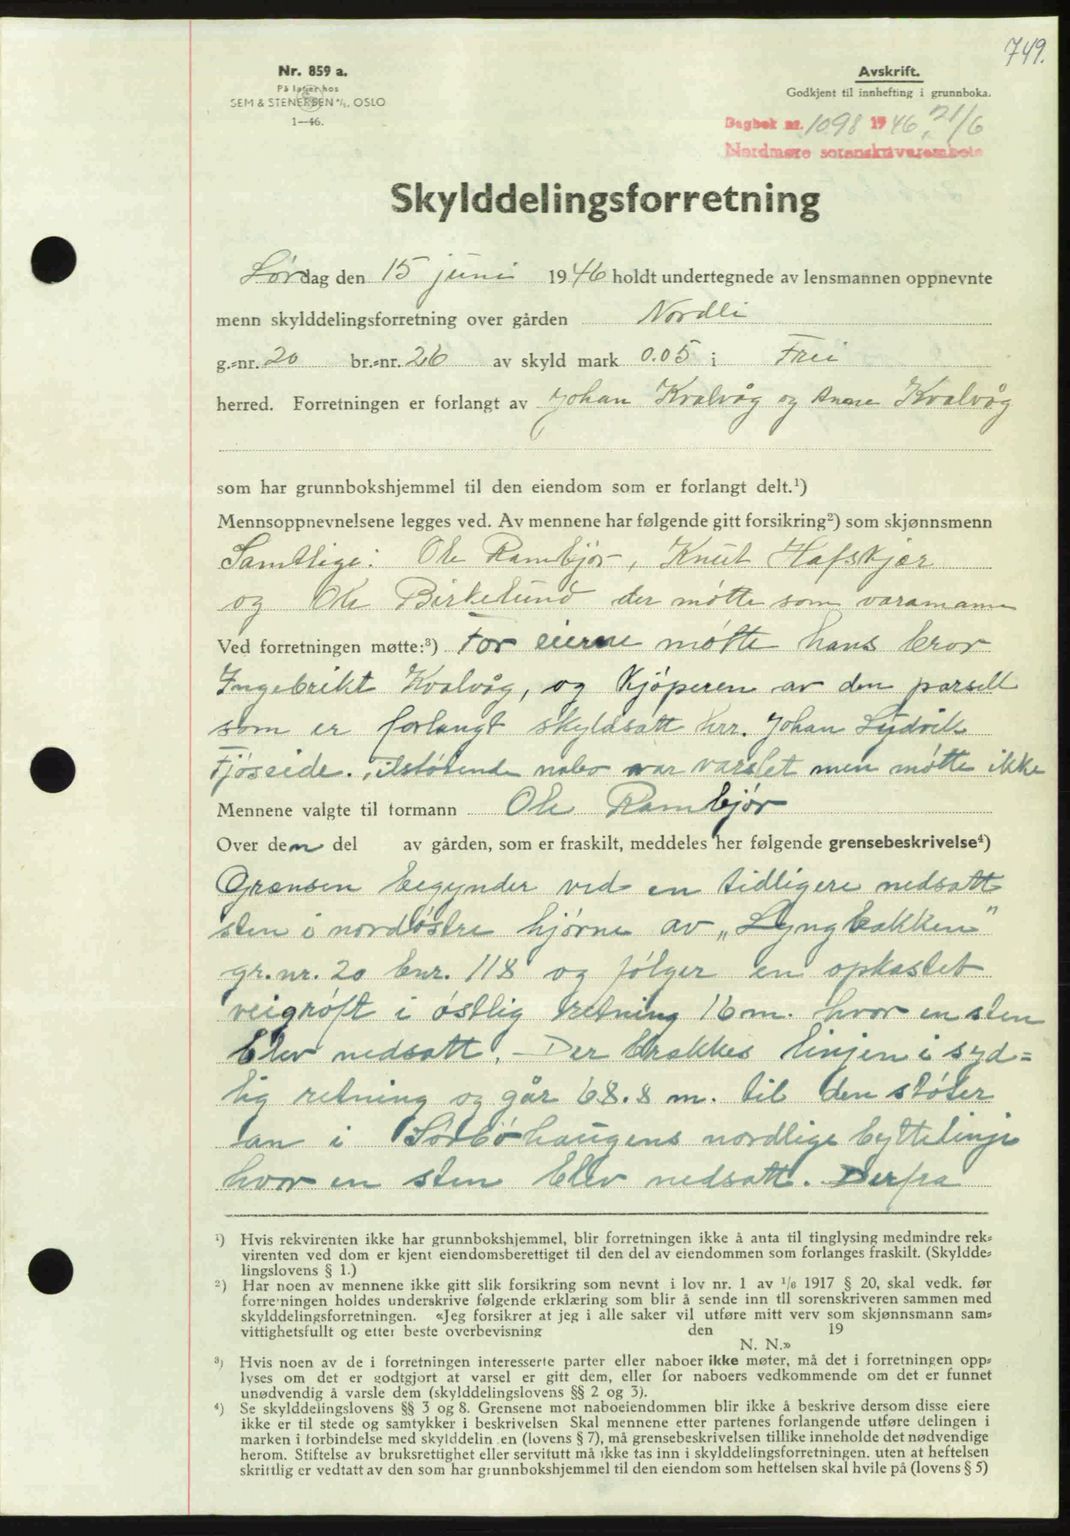 749.
Nr. 859 a.
På lager hos
SEM & STENERSEN A/S, OSLO
1—46.
Avskrift.
Godkjent til innhefting i grunnboka.
Dagbok nr. 1098 1946, 21/6
Nordmøre sorenskriverembete
Skylddelingsforretning
Lørdag den 15 juni 1946 holdt undertegnede av lensmannen oppnevnte
menn skylddelingsforretning over gården Nordli
g.-nr. 20 br.-nr. 26 av skyld mark 0.05 i Frei
herred. Forretningen er forlangt av Johan Kvalvåg og Anne Kvalvåg
som har grunnbokshjemmel til den eiendom som er forlangt delt.¹)
Mennsoppnevnelsene legges ved. Av mennene har følgende gitt forsikring²) som skjønnsmenn
Samtlige: Ole Rambjør, Knut Hafskjær
og Ole Birkelund der møtte som varamann
Ved forretningen møtte:³) For eierne møtte hans bror
Ingebrikt Kvalvåg, og kjøperen av den parsell
som er forlangt skyldsatt herr. Johan Ludvik
Fjøseide. tilstøtende nabo var varslet men møtte ikke
Mennene valgte til formann Ole Rambjør
Over den del av gården, som er fraskilt, meddeles her følgende grensebeskrivelse⁴)
Grensen begynder ved en tidligere nedsatt
sten i nordøstre hjørne av „Lyngbakken"
gr. nr. 20 bnr. 118 og følger en opkastet
veigrøft i østlig retning 16 m. hvor en sten
blev nedsatt. - Der brekkes linjen i syd=
lig retning og går 68.8 m. til den støter
an i Sørbøhaugens nordlige byttelinje
hvor en sten blev nedsatt. Derfra
¹) Hvis rekvirenten ikke har grunnbokshjemmel, blir forretningen ikke å anta til tinglysing medmindre rek-
virenten ved dom er kjent eiendomsberettiget til den del av eiendommen som forlanges fraskilt. (Skyldde-
lingslovens § 1.)
²) Har noen av mennene ikke gitt slik forsikring som nevnt i lov nr. 1 av 1/6 1917 § 20, skal vedk. før
forretningen holdes underskrive følgende erklæring som blir å sende inn til sorenskriveren sammen med
skylddelingsforretningen. «Jeg forsikrer at jeg i alle saker vil utføre mitt verv som skjønnsmann sam-
vittighetsfullt og etter beste overbevisning den 19
N. N.»
³) Hvis noen av de i forretningen interesserte parter eller naboer ikke møter, må det i forretningen opp-
lyses om det er godtgjort at varsel er gitt dem, eller for naboers vedkommende om det er funnet
unødvendig å varsle dem (skylddelingslovens §§ 2 og 3).
⁴) Se skylddelingslovens §§ 3 og 8. Grensene mot naboeiendommen blir ikke å beskrive dersom disse eiere
ikke er til stede og samtykker i beskrivelsen Skal mennene etter partenes forlangende utføre delingen i
marken i forbindelse med skylddelin en (lovens § 7), må grensebeskrivelsen tillike inneholde det nødvendige
herom. Stiftelse av bruksrettighet eller servitutt må ikke tas inn i skylddelingsforretningen. uten at heftelsen
skriftlig er vedtatt av den som har grunnbokshjemmel til den eiendom som heftelsen skal hvile på (lovens § 5)